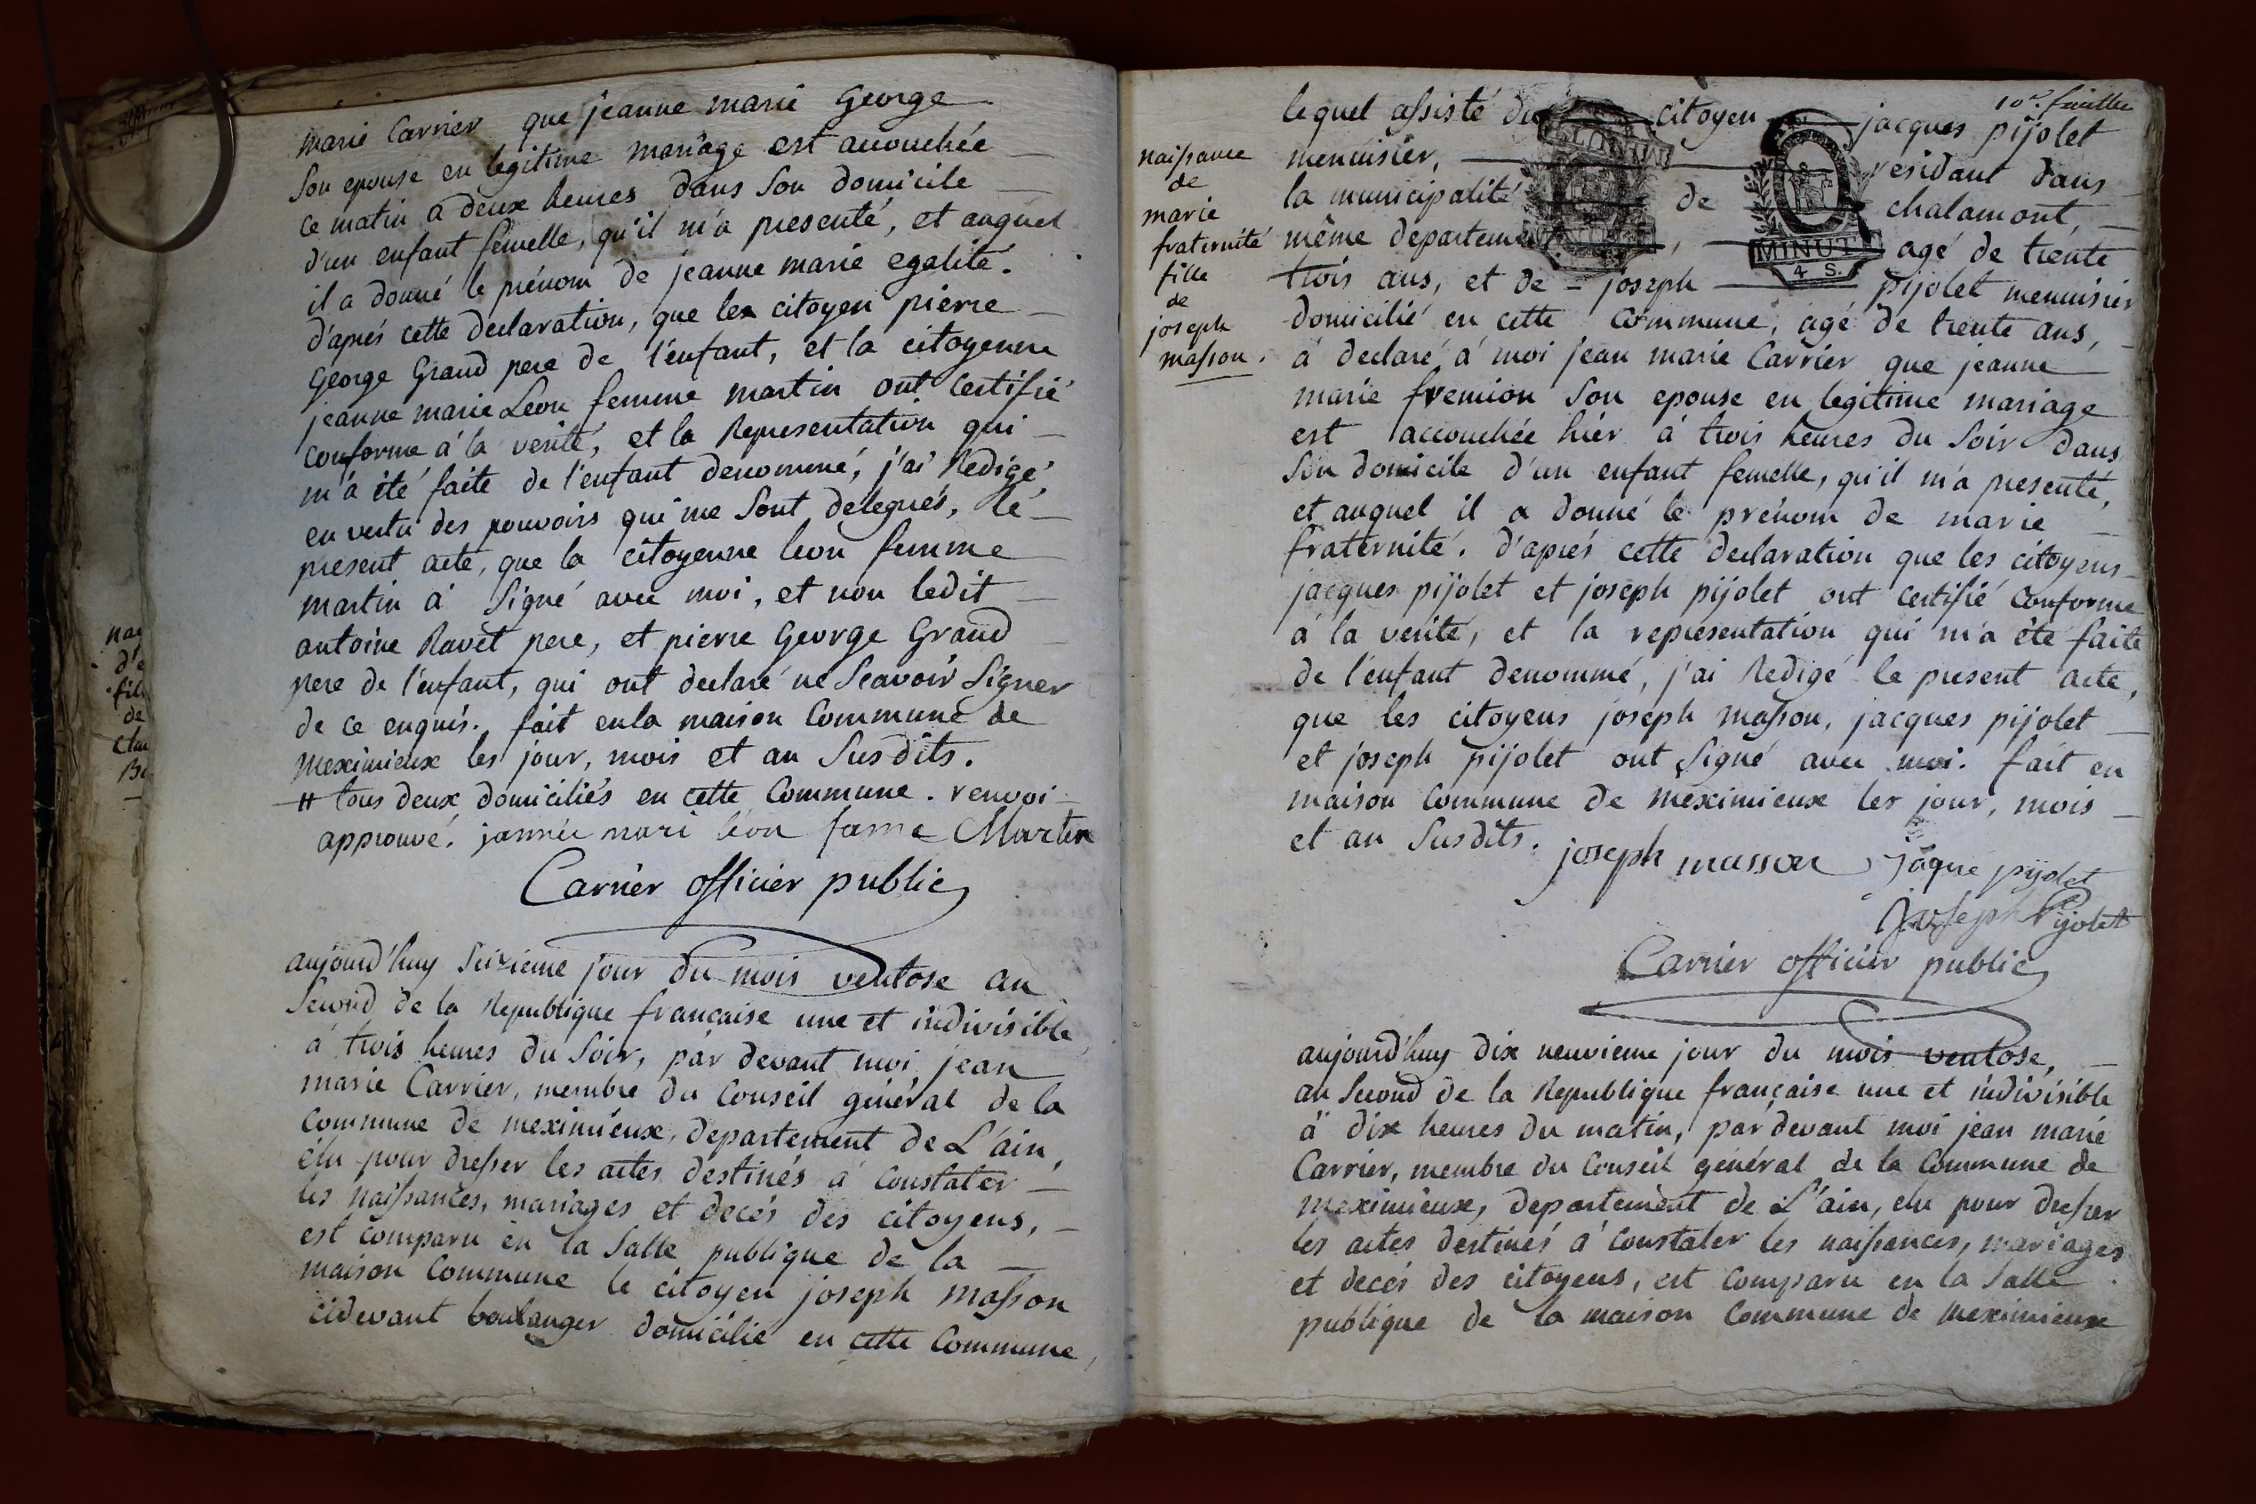 marie Carrier que jeanne marie George
Son epouse en legitime mariage est accouchée
ce matin a deux heures dans Son domicile
d'un enfant femelle, qu'il m'a presenté, et auquel
il a donné le prénom de jeanne marie egalité.
d'aprés cette declaration, que les citoyen pierre
George Grand pere de l'enfant, et la citoyenne
jeanne marie Léon femme martin ont certifié
conforme á la verité, et la Representation qui
m'a été faite de l'enfant denommé, j'ai Redigé,
en vertu des pouvoirs qui me Sont delegués, le
present acte, que la citoyenne leon femme
martin á Signé avec moi, et non ledit
antoine Ravet pere, et pierre George Grand
pere de l'enfant, qui ont declaré ne Scavoir Signer
de ce enquis. fait en la maison Commune de
meximieux les jour, mois et an Susdits.
# tous deux domiciliés en cette Commune. renvoi
approuvé. jannée mari léon fame Martin
Carrier officier public
aujourd'huy Seizieme jour du mois ventose an
Second de la Republique francaise une et indivisible
á trois heures du Soir, par devant moi jean
marie Carrier, membre du Conseil général de la
Commune de meximieux, departement de L'ain,
élu pour dresser les actes destinés á Constater
les naissances, mariages et decés des citoyens,
est comparu en la Salle publique de la
maison Commune le citoyen joseph masson
cidevant boulanger domicilié en cette Commune,
10e. feuillet
lequel assisté du citoyen jacques pijolet
menuisier, residant dans
la municipalité de chalamont,
même departement, agé de trente
trois ans, et de joseph pijolet menuisier
domicilié en cette Commune, agé de trente ans,
á declaré á moi jean marie Carrier que jeanne
marie fremion Son epouse en legitime mariage
est accouchée hiér á trois heures du Soir dans
Son domicile d'un enfant femelle, qu'il m'a presenté,
et auquel il a donné le prénom de marie
fraternité. d'aprés cette declaration que les citoyens
jacques pijolet et joseph pijolet ont certifié Conforme
á la verité, et la representation qui m'a été faite
de l'enfant denommé, j'ai Redigé le present acte,
que les citoyens joseph masson, jacques pijolet
et joseph pijolet ont Signé avec moi. fait en
maison Commune de meximieux les jour, mois
et an Susdits.
joseph masson jaque pijolet
Joseph Pijolet
Carrier officier public
aujourd'huy dix neuvieme jour du mois ventose,
an Second de la Republique française une et indivisible
á dix heures du matin, par devant moi jean marie
Carrier, membre du Conseil général de la Commune de
meximieux, departement de L'ain, elu pour dresser
les actes destinés á Constater les naissances, mariages
et decés des citoyens, est Comparu en la Salle
publique de la maison Commune de meximieux
naissance
de
marie
fraternité
fille
de
joseph
masson.
MINUTE
4 S.